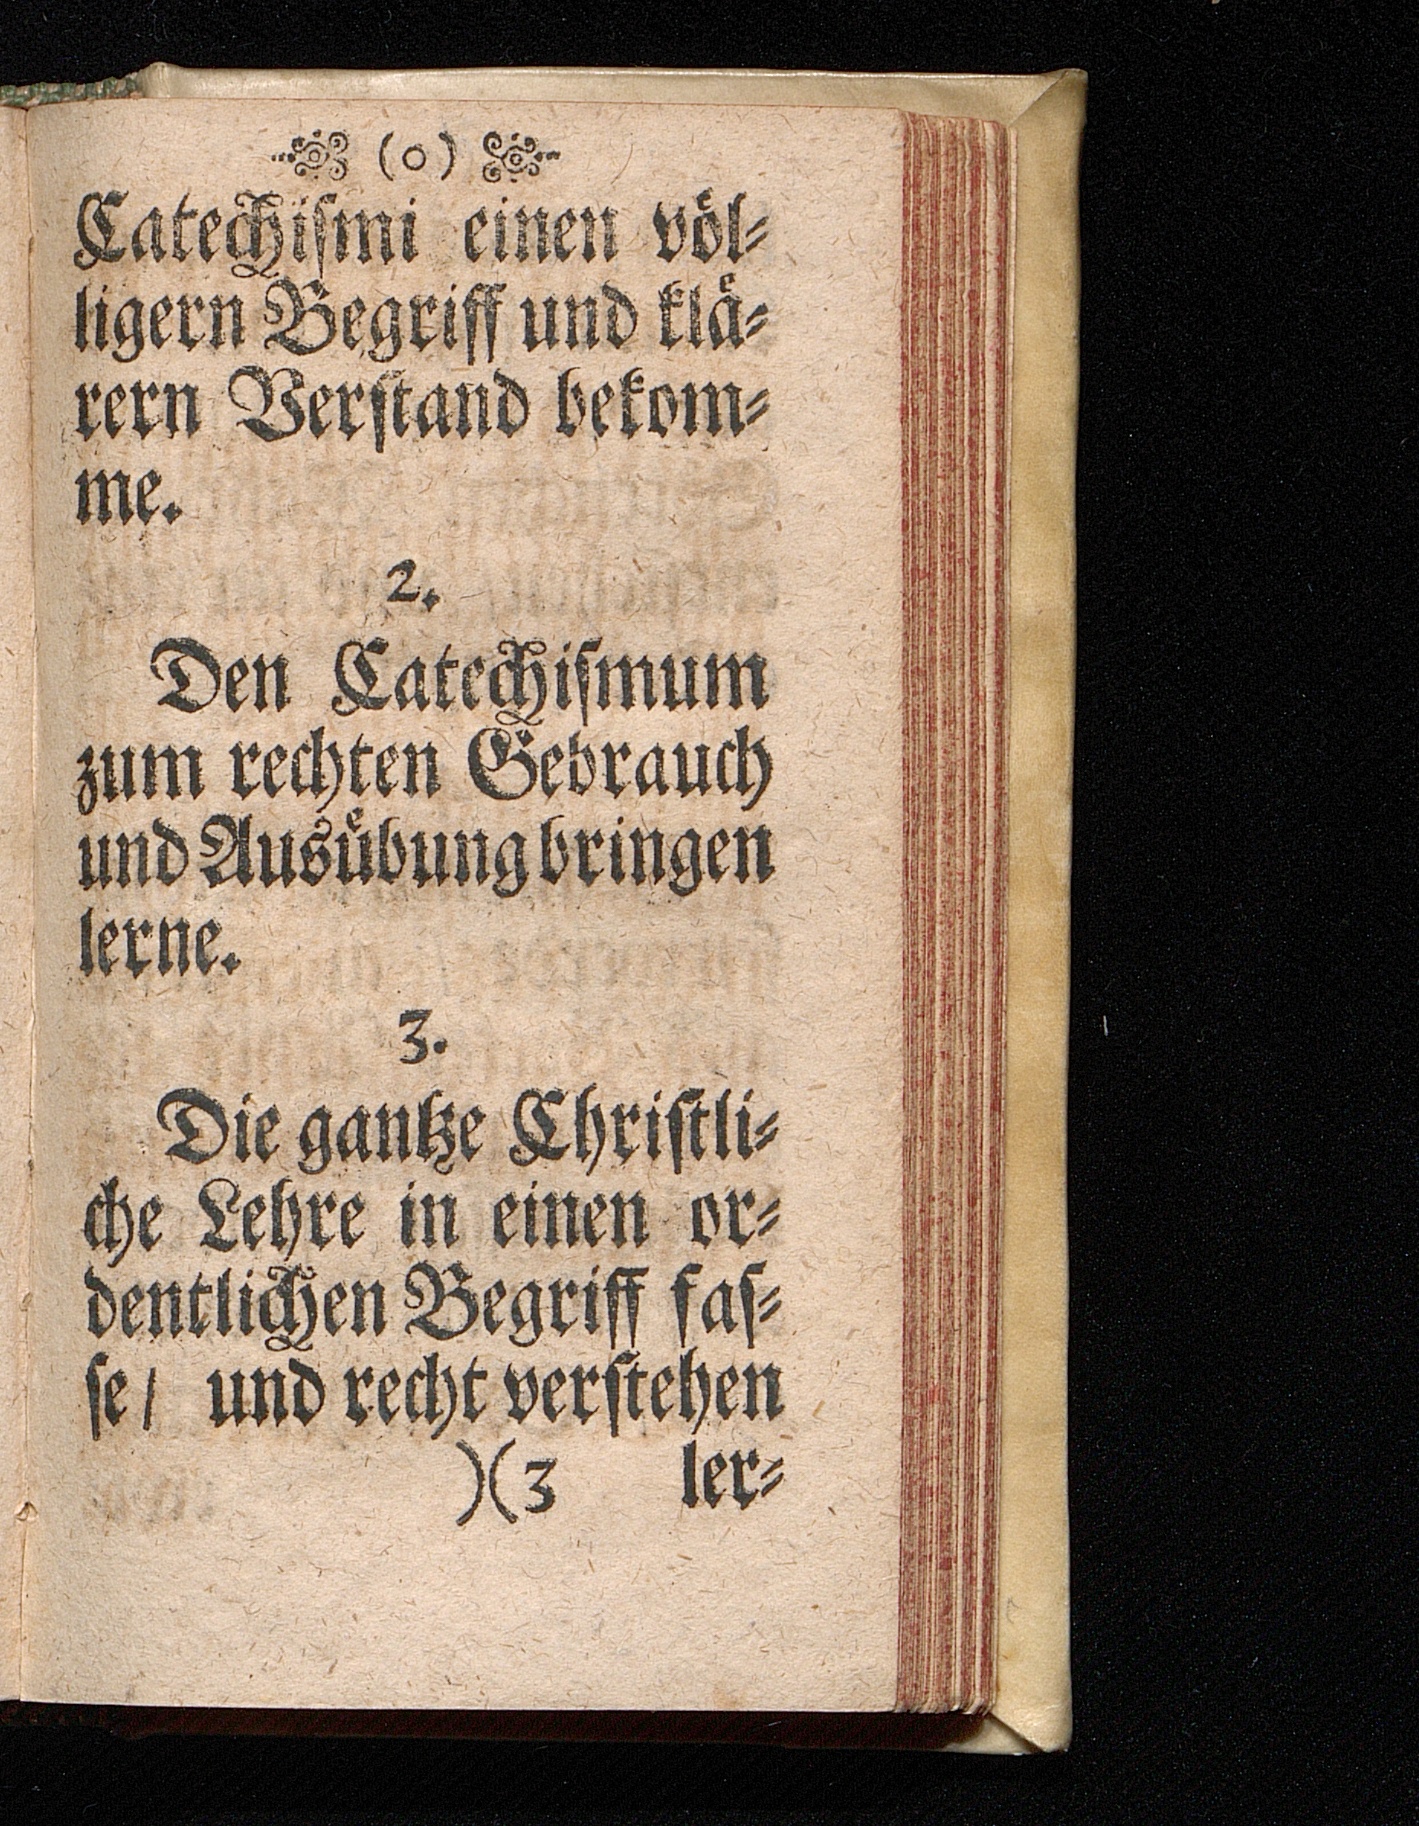 (o)
Catechiſmi einen voͤl⸗
ligern Begriff und klaͤ⸗
rern Verſtand bekom⸗
me.
2.
Den Catechiſmum
zum rechten Gebrauch
und Ausuͤbung bringen
lerne.
3.
Die gantze Chriſtli⸗
che Lehre in einen or⸗
dentlichen Begriff faſ⸗
ſe / und recht verſtehen
)(3 ler⸗